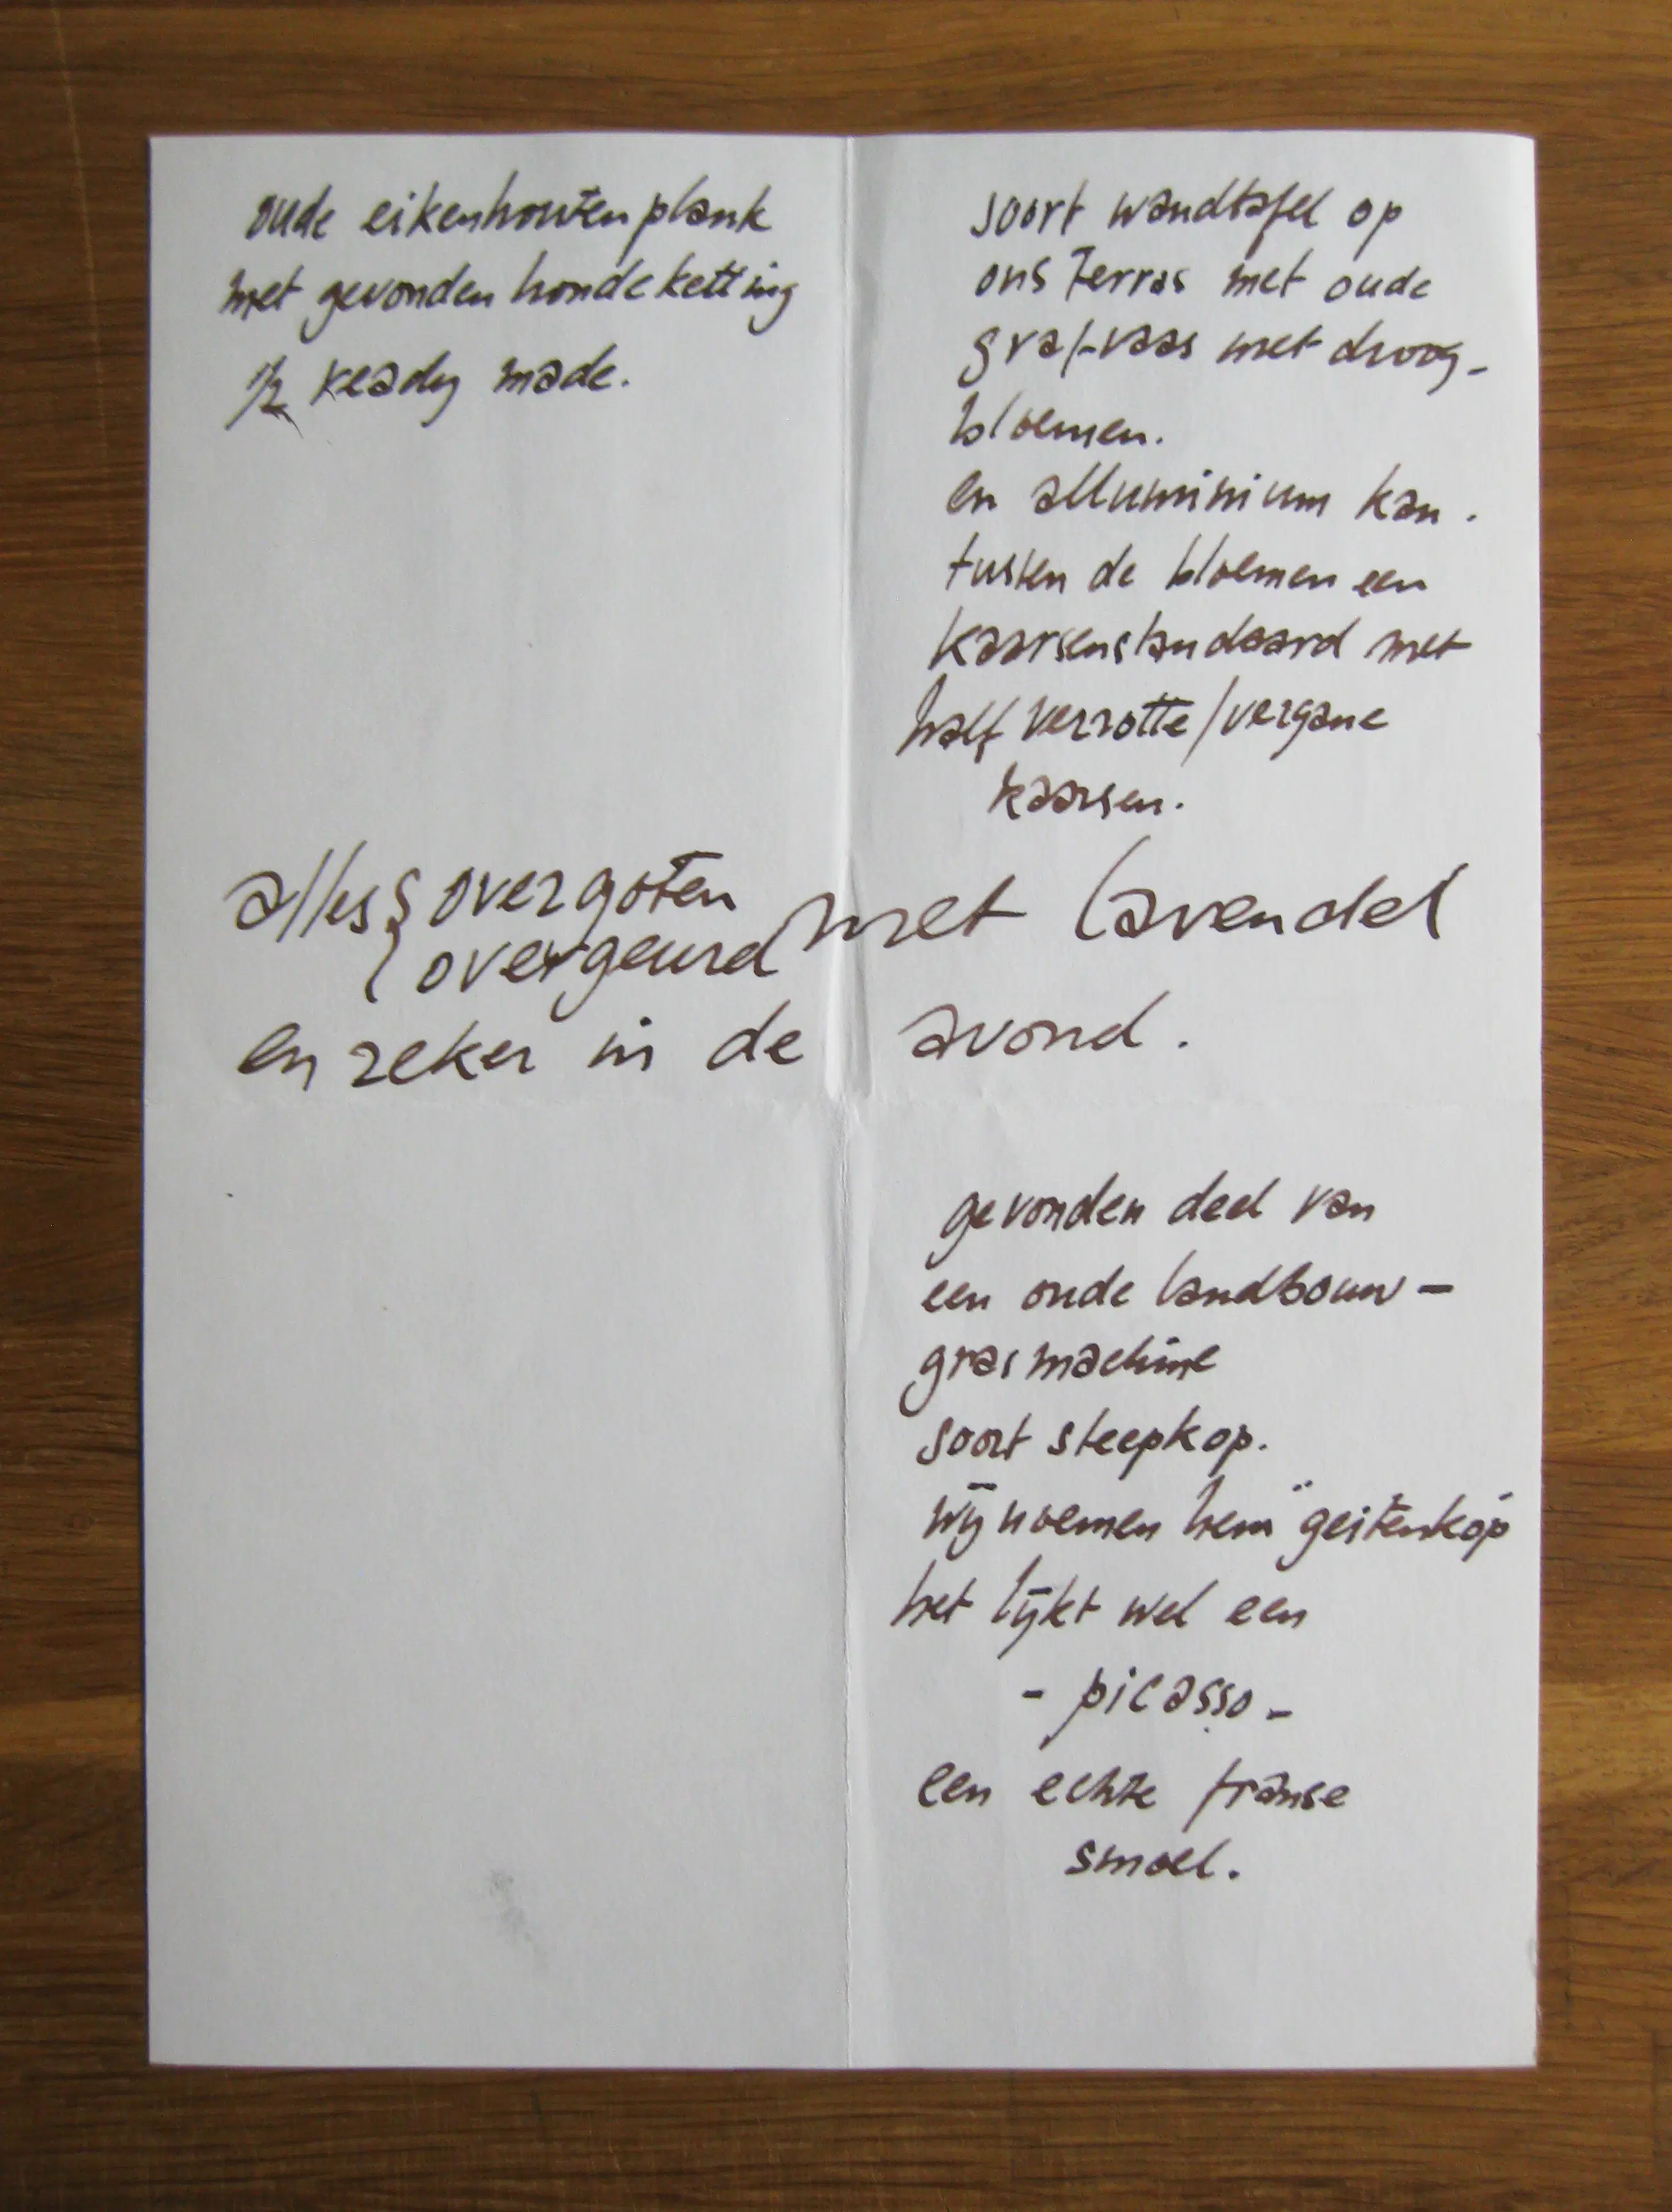 oude eikenhouten plank
met gevonden hondeketting
1/2 ready made.
soort wandtafel op
ons terras met oude
graf-vaas met droog-
bloemen.
en alluminium kan.
tussen de bloemen een
kaarsenstandaard met
half verrotte/vergane
kaarsen.
alles { overgoten met lavendel
overgeurd
en zeker in de avond.
gevonden deel van
een oude landbouw-
grasmachine
soort steepkop.
wij noemen hem "geitenkop"
het lijkt wel een
- picasso -
een echte franse
smoel.